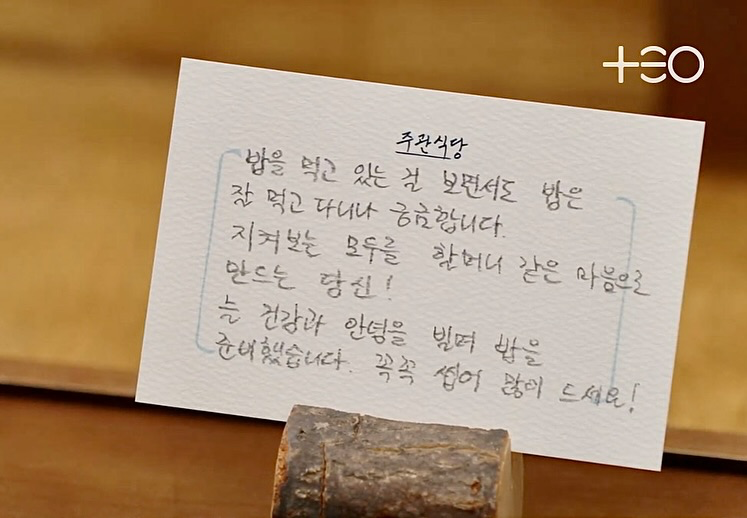 TEO
주관식당
밥을 먹고 있는 걸 보면서도 밥은
잘 먹고 다니나 궁금합니다.
지켜보는 모두를 할머니 같은 마음으로
만드는 당신!
늘 건강과 안녕을 빌며 밥을
준비했습니다. 꼭꼭 씹어 많이 드세요!